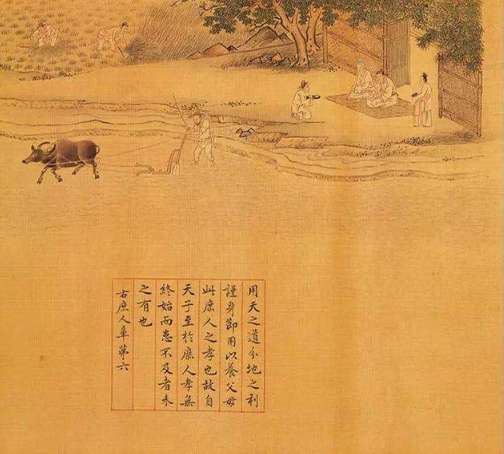 用天之道分地之利
謹身節用以養父母
此庶人之孝也故自
天子至於庶人孝無
終始而患不及者未
之有也
右庶人章第六